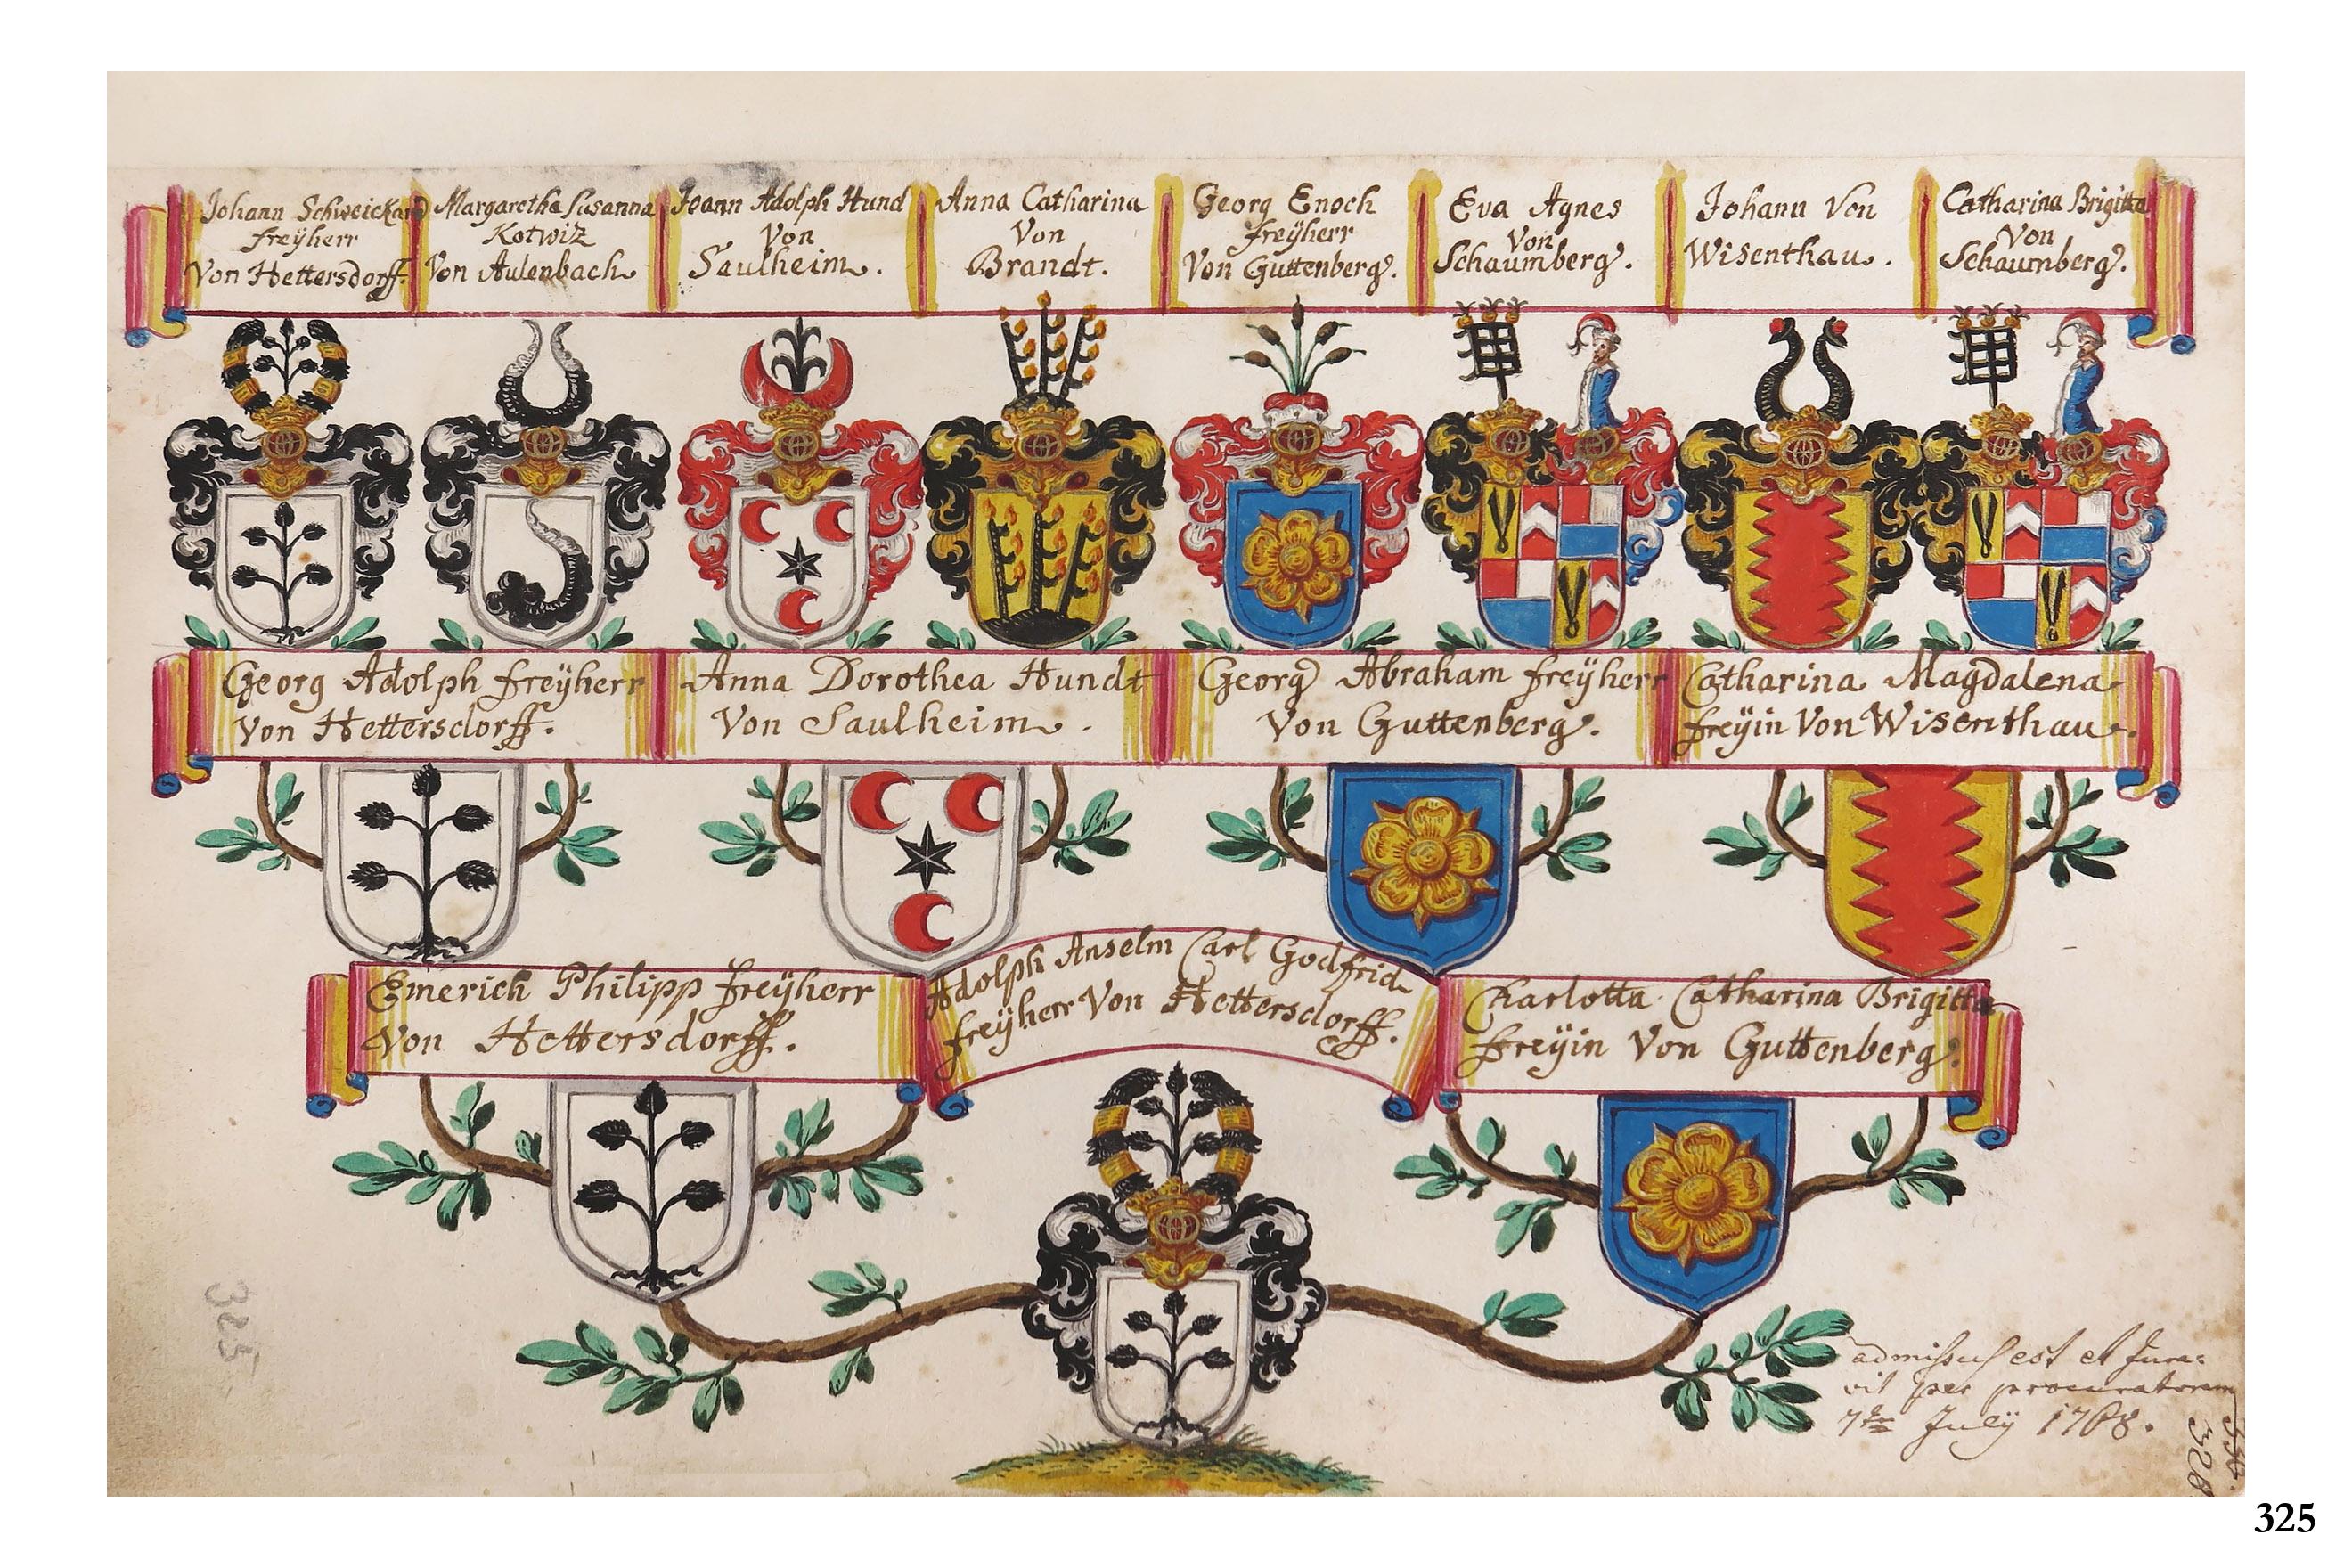 Johann Schweickard
freÿherr
Von Hettersdorff.
Margaretha Susanna
Kotwiz
Von Aulenbach
Joann Adolph Hund
Von
Saulheim.
Anna Catharina
Von
Brandt.
Georg Enoch
freÿherr
Von Guttenberg.
Eva Agnes
Von
Schaumberg.
Johann Von
Wisenthau.
Catharina Brigitta
Von
Schaumberg.
Georg Adolph freÿherr
Von Hettersdorff.
Anna Dorothea Hundt
Von Saulheim.
Georg Abraham freÿherr
Von Guttenberg.
Catharina Magdalena
freÿin Von Wisenthau.
Emerich Philipp freÿherr
Von Hettersdorff.
Adolph Anselm Carl Godfrid
freÿherr Von Hettersdorff.
Charlotta Catharina Brigitta
freÿin Von Guttenberg.
325
admissus est et Jura:
vit per procuratorem
7ma Julÿ 1768.
328
325